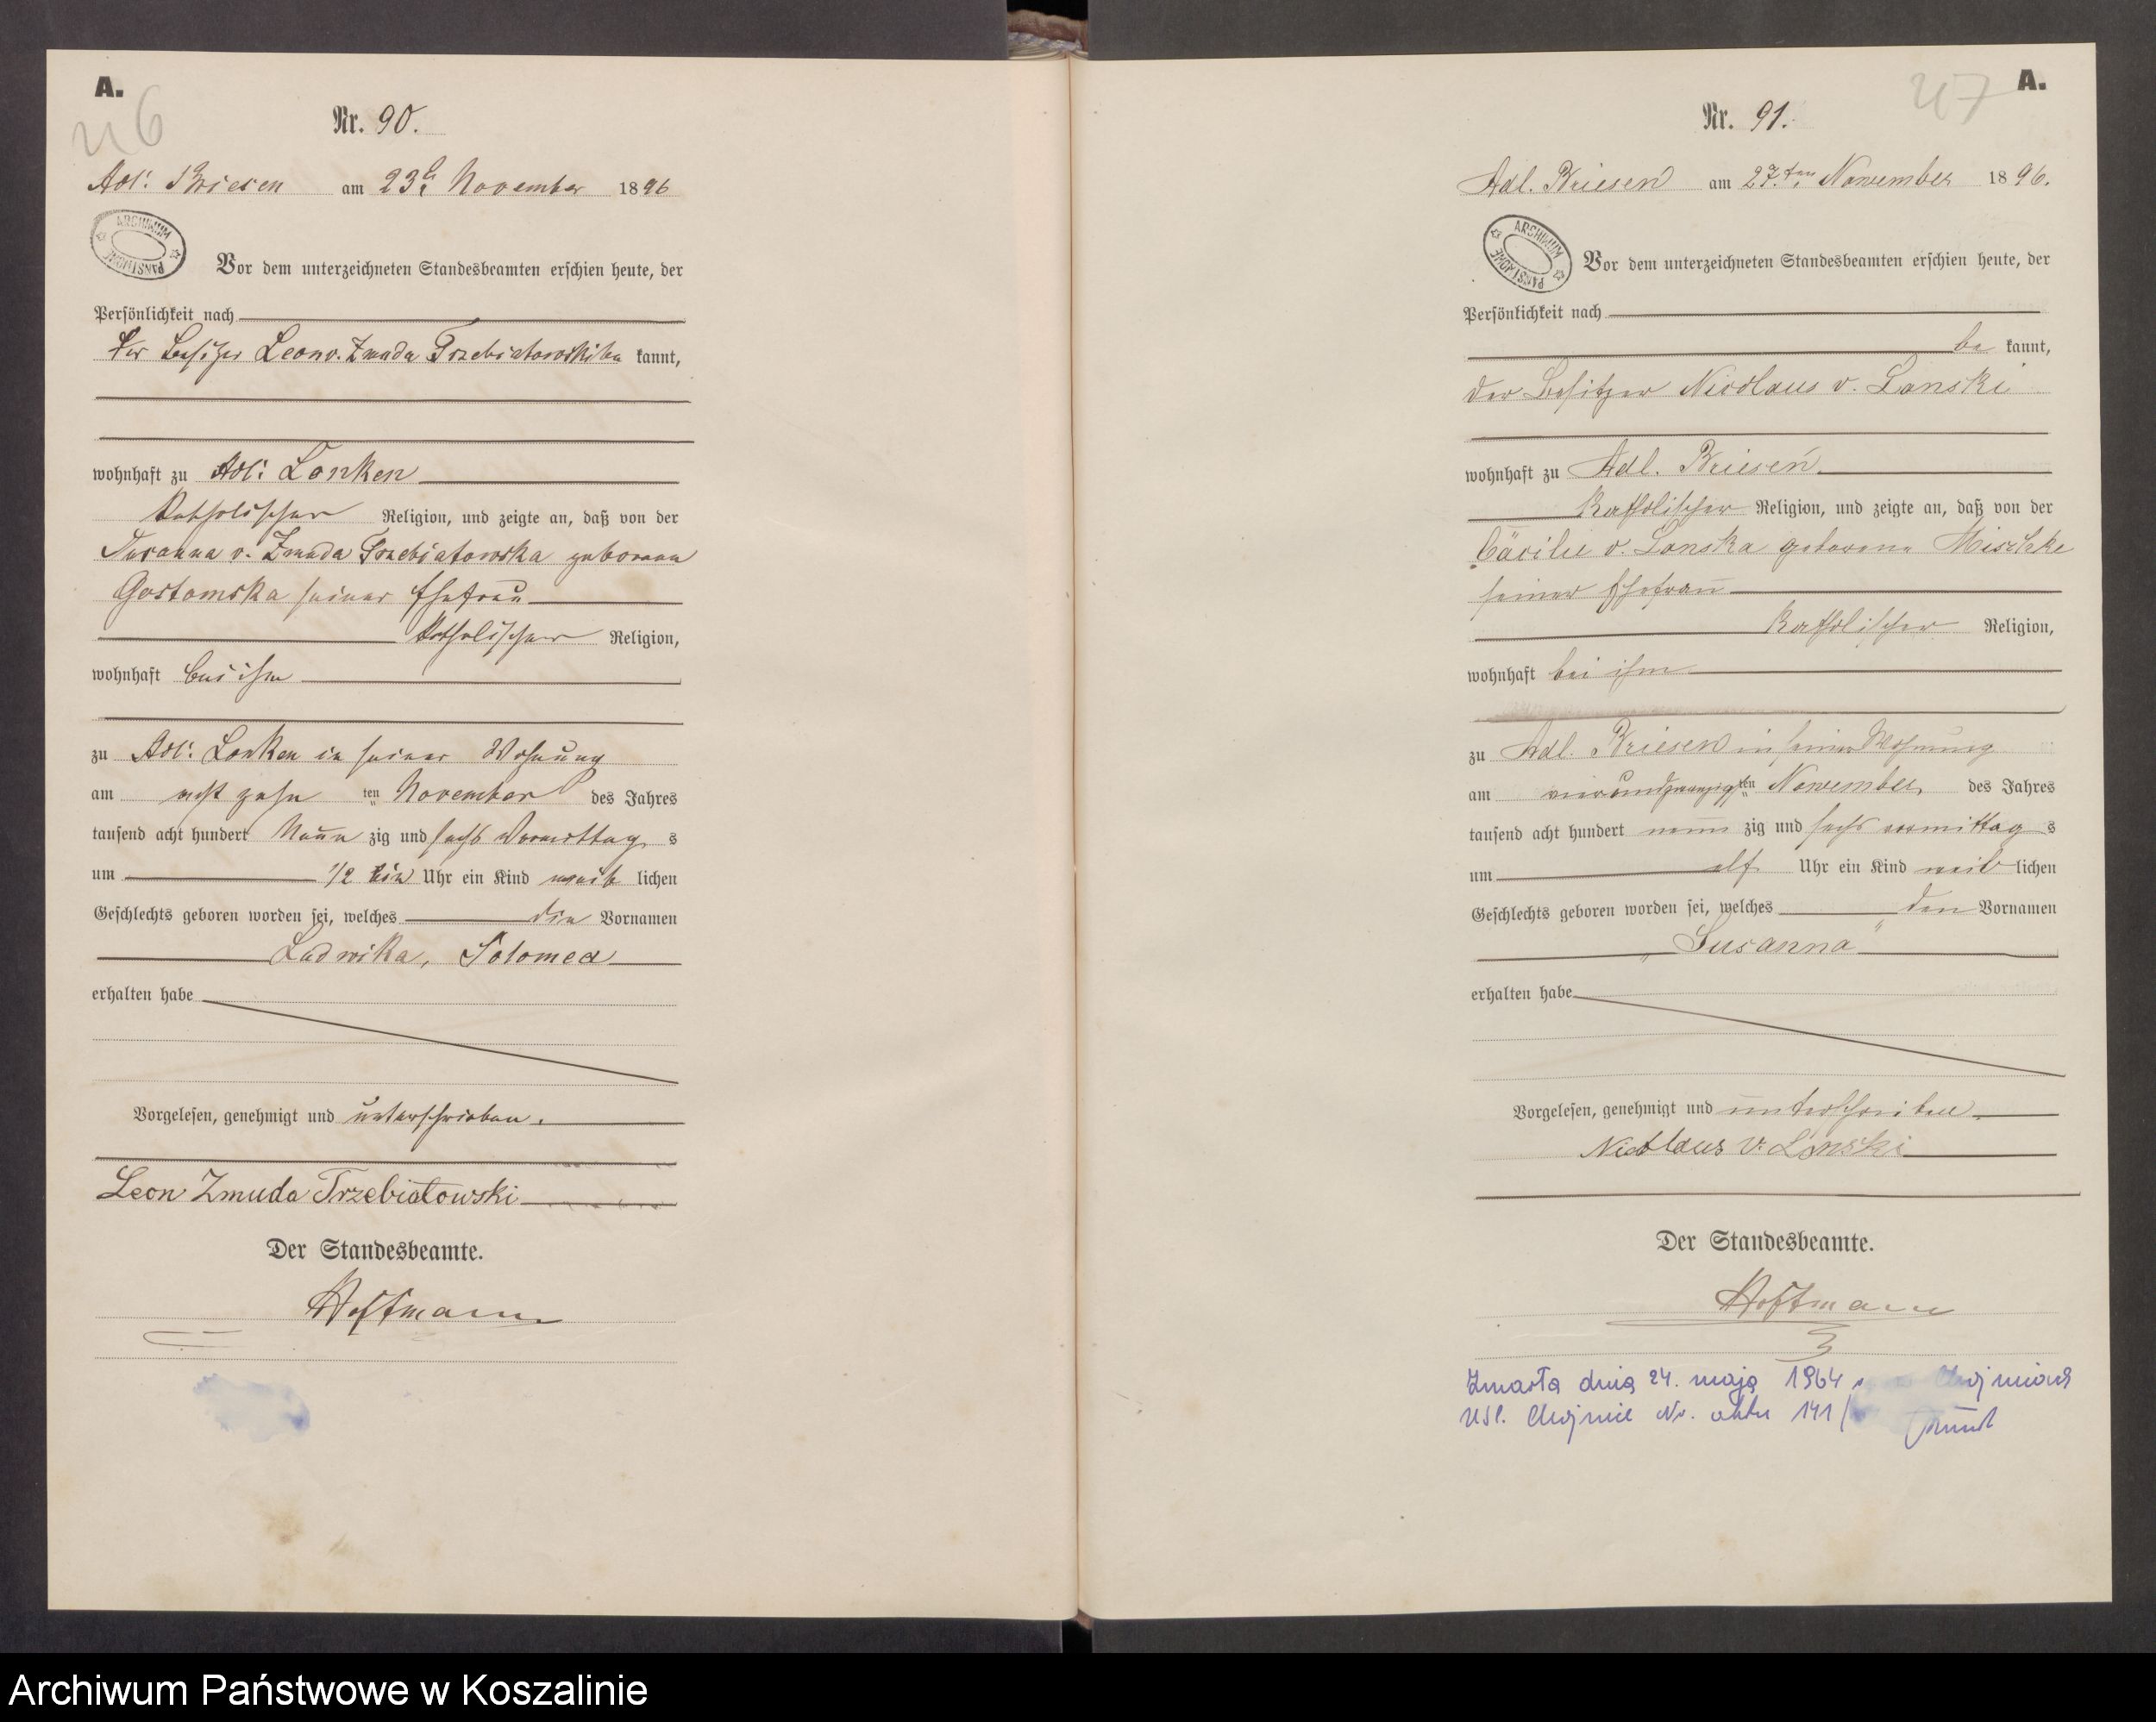 A.
46
Nr. 90.
Adl: Briesen am 23t November 1896
ARCHIWUM PAŃSTWOWE
Vor dem unterzeichneten Standesbeamten erschien heute, der
Persönlichkeit nach
der Besitzer Leon v. Zmuda Trzebiatowski be kannt,
wohnhaft zu Adl: Lonken
katholischer Religion, und zeigte an, daß von der
Susanna v. Zmuda Trzebiatowska geborenen
Gostomska seiner Ehefrau
katholischer Religion,
wohnhaft bei ihm
zu Adl: Lonken in seiner Wohnung
am acht zehn ten November des Jahres
tausend acht hundert Neun zig und sechs Vormittag s
um 1/2 ein Uhr ein Kind weib lichen
Geschlechts geboren worden sei, welches die Vornamen
Ladwika, Solomea
erhalten habe
Vorgelesen, genehmigt und unterschrieben.
Leon Zmuda Trzebiatowski
Der Standesbeamte.
Hoffmann
A.
47
Nr. 91.
Adl. Briesen am 27.ten November 1896.
ARCHIWUM PAŃSTWOWE
Vor dem unterzeichneten Standesbeamten erschien heute, der
Persönlichkeit nach
be kannt,
der Besitzer Nicolaus v. Lonski
wohnhaft zu Adl. Briesen
katholischer Religion, und zeigte an, daß von der
Cäcilie v. Lonska geborene Mischke
seiner Ehefrau
katholischer Religion,
wohnhaft bei ihm
zu Adl. Briesen in seiner Wohnung
am vierundzwanzigsten November, des Jahres
tausend acht hundert neun zig und sechs vormittag s
um elf Uhr ein Kind weib lichen
Geschlechts geboren worden sei, welches den Vornamen
„Susanna"
erhalten habe
Vorgelesen, genehmigt und unterschrieben.
Nicolaus v. Lonski
Der Standesbeamte.
Hoffmann
Zmarła dnia 24. maja 1964 Chojnicach
USC. Chojnice Nr. aktu 141/
Archiwum Państwowe w Koszalinie